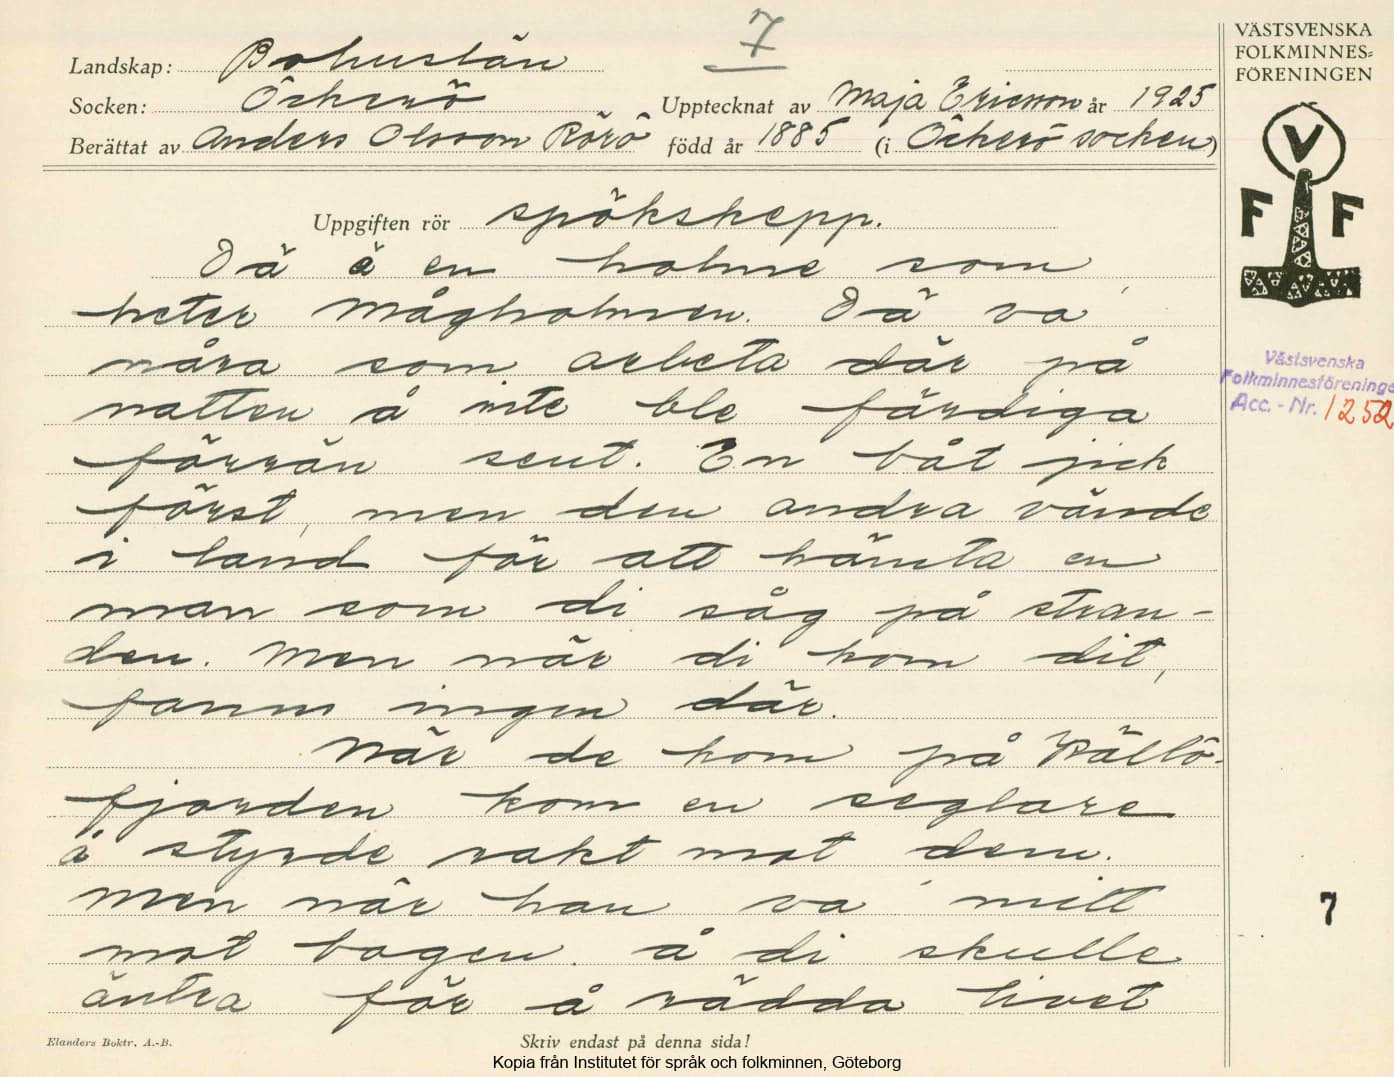 7
VÄSTSVENSKA
FOLKMINNES=
FÖRENINGEN
Landskap: Bohuslän
Socken: Öckerö
Upptecknat av Maja Ericson år 1925
Berättat av Anders Olsson Rörö född år 1885 (i Öckerö socken)
V
F F
Uppgiften rör spökskepp.
Dä ä en holme som
heter Mågholmen. Dä va'
måra som arbeta där på
natten å inte ble färdiga
förrän sent. En båt jick
först, men den andra vände
i land för att hämta en
man som di såg på stran-
den. Men när di kom dit,
fanns ingen där.
När de kom på Källö-
fjorden kom en seglare
å styrde rakt mot dem.
Men när han va' mitt
mot bogen å di skulle
äntra för å rädda livet
Västsvenska
Folkminnesföreninge
Acc. - Nr. 1252
7
Elanders Boktr. A.-B.
Skriv endast på denna sida!
Kopia från Institutet för språk och folkminnen, Göteborg